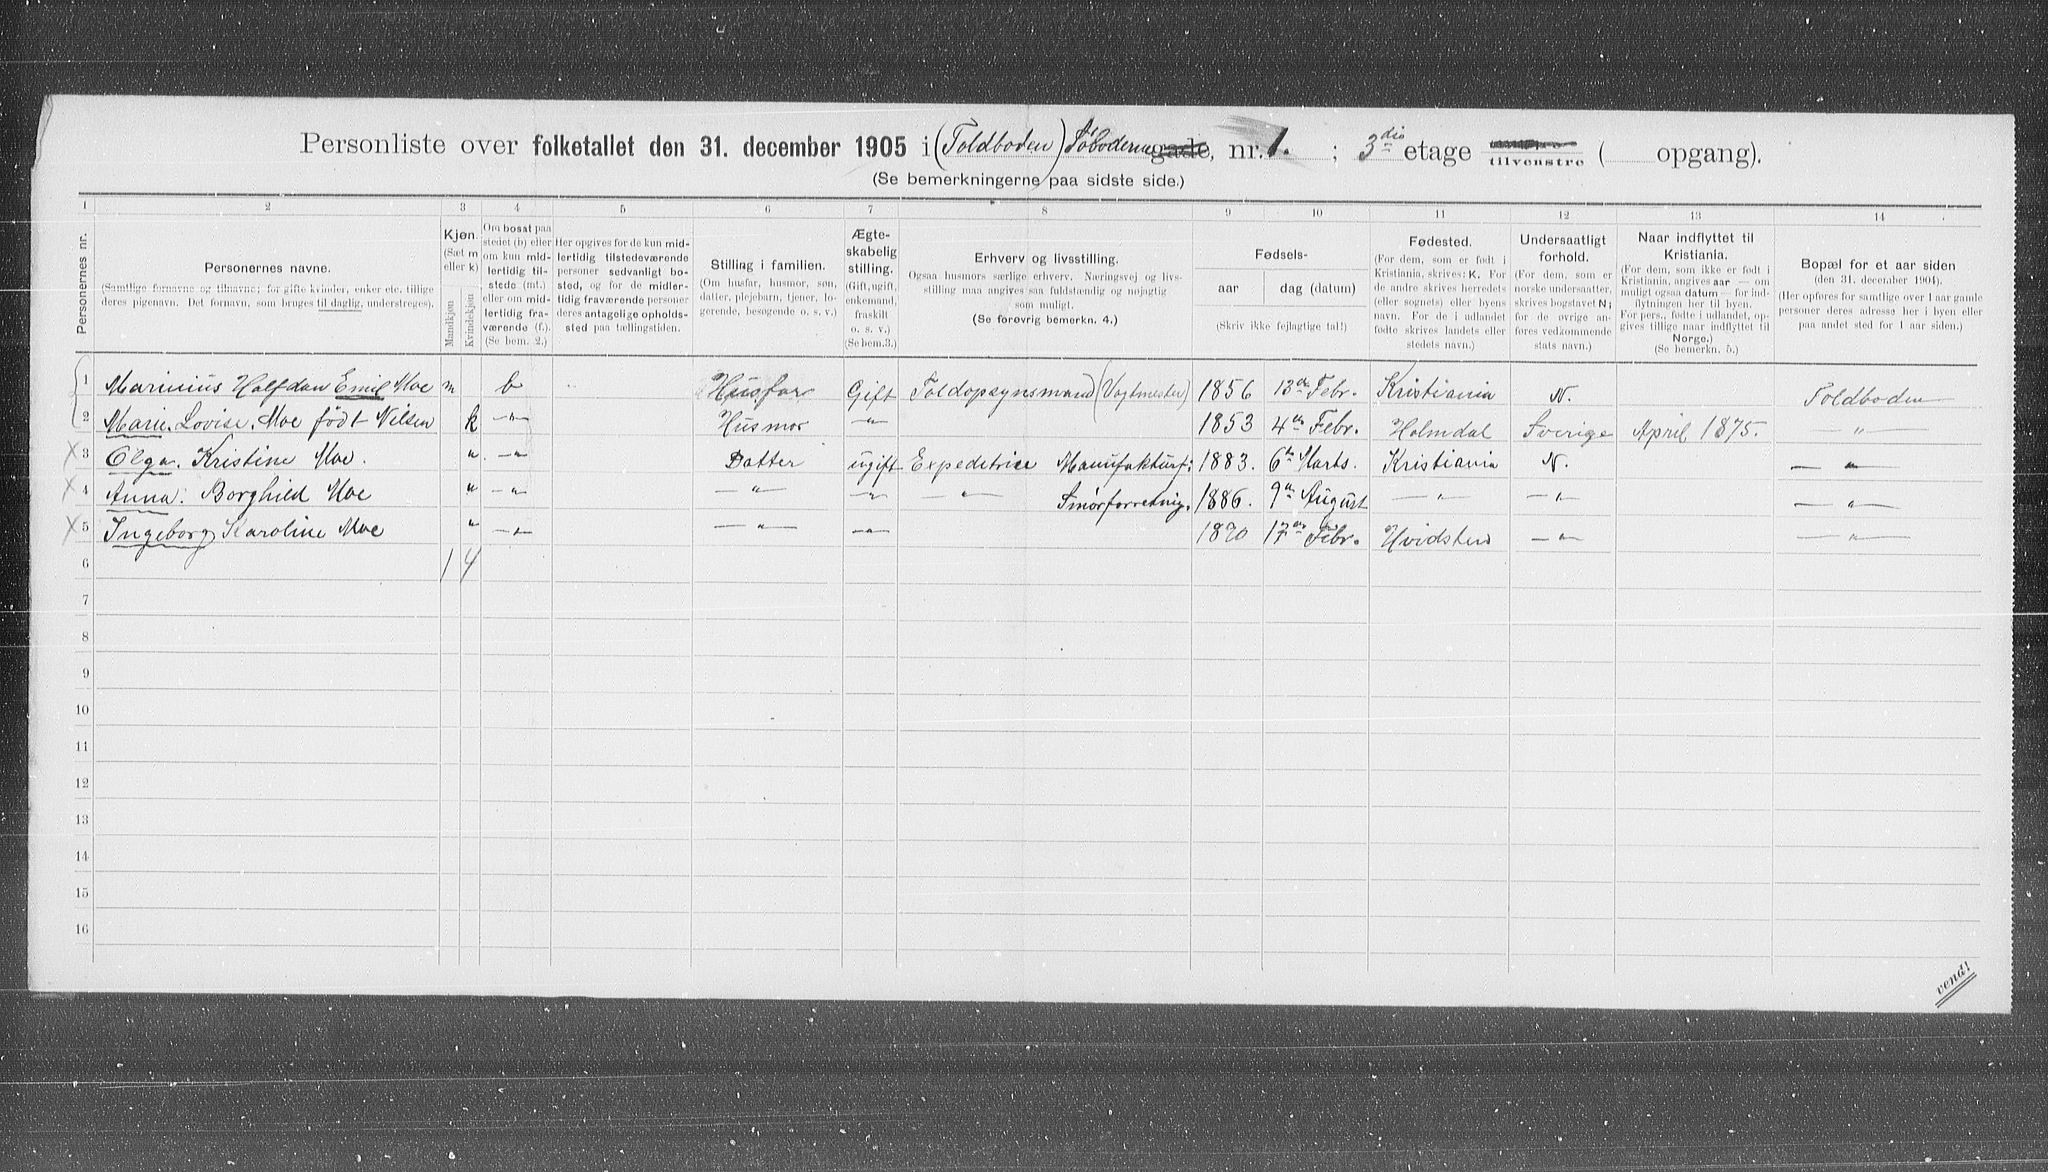 Personliste over folketallet den 31. december 1905 i (Toldboden) Søboderne gade, nr. 1. ; 3die etage tilvenstre ( opgang).
(Se bemerkningerne paa sidste side.)
1 2 3 4 5 6 7 8 9 10 11 12 13 14
Personernes nr.
Personernes navne.
(Samtlige fornavne og tilnavne; for gifte kvinder, enker etc. tillige deres pigenavn. Det fornavn, som bruges til daglig, understreges).
Kjøn.
(Sæt m eller k)
Mandkjøn
Kvindekjøn
Om bosat paa stedet (b) eller om kun midlertidig tilstede (mt.) eller om midlertidig fraværende (f.). (Se bem. 2.)
Her opgives for de kun midlertidig tilstedeværende personer sedvanligt bosted, og for de midlertidig fraværende personer deres antagelige opholdssted paa tællingstiden.
Stilling i familien.
(Om husfar, husmor, søn, datter, plejebarn, tjener, logerende, besøgende o. s. v.)
Ægteskabelig stilling.
(Gift, ugift, enkemand, fraskilt o. s. v.)
(Se bem.3.)
Erhverv og livsstilling.
Ogsaa husmors særlige erhverv. Næringsvej og livsstilling maa angives saa fuldstændig og nøjagtig som muligt.
(Se forøvrig bemerkn. 4.)
Fødsels-
aar dag (datum)
(Skriv ikke fejlagtige tal!)
Fødested.
(For dem, som er født i Kristiania, skrives: K. For de andre skrives herredets (eller sognets) eller byens navn. For de i udlandet fødte skrives landets eller stedets navn.)
Undersaatligt forhold.
(For dem, som er norske undersaatter, skrives bogstavet N; for de øvrige anføres vedkommende stats navn.)
Naar indflyttet til Kristiania.
(For dem, som ikke er født i Kristiania, angives aar — om muligt ogsaa datum — for indflytningen her til byen. For pers., fødte i udlandet, opgives tillige naar indflyttet til Norge.)
(Se bemerkn. 5.)
Bopæl for et aar siden
(den 31. december 1904).
(Her opføres for samtlige over 1 aar gamle personer deres adresse her i byen eller paa andet sted for 1 aar siden.)
1 Marinius Halfdan Emil Moe m b Husfar Gift Toldopsynsmand (Vagtmester) 1856 13de Febr. Kristiania N. Toldboden
2 Marie. Lovise. Moe født Nilsen k —„— Husmor —„— 1853 4de Febr. Holmdal Sverige April 1875. —„—
X 3 Olga. Kristine Moe. „ —„— Datter ugift Expeditrice Manufakturf: 1883. 6te Marts. Kristiania N. —„—
X 4 Anna. Borghild Moe „ —„— —„— —„— —„— Smørforretnig. 1886. 9de August —„— —„— —„—
X 5 Ingeborg Karoline Moe „ —„— —„— —„— 1890 17de Febr. Hvidsten —„— —„—
6 1 4
7
8
9
10
11
12
13
14
15
16
vend!